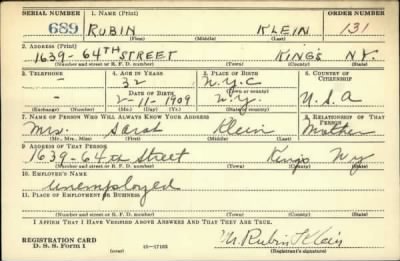 SERIAL NUMBER 1. NAME (Print) ORDER NUMBER
689 RUBIN KLEIN 131
(First) (Middle) (Last)
2. ADDRESS (Print)
1639- 64TH STREET KINGS NY.
(Number and street or R. F. D. number) (Town) (County) (State)
3. TELEPHONE 4. AGE IN YEARS 5. PLACE OF BIRTH 6. COUNTRY OF CITIZENSHIP
— 32 N.Y.C
DATE OF BIRTH (Town or county)
— 2-11-1909 N.Y. U.S.A
(Exchange) (Number) (Mo.) (Day) (Yr.) (State or country)
7. NAME OF PERSON WHO WILL ALWAYS KNOW YOUR ADDRESS 8. RELATIONSHIP OF THAT PERSON
Mrs. Sarah Klein Mother
(Mr., Mrs., Miss) (First) (Middle) (Last)
9. ADDRESS OF THAT PERSON
1639-64th Street Kings Ny
(Number and street or R. F. D. number) (Town) (County) (State)
10. EMPLOYER'S NAME
unemployed
11. PLACE OF EMPLOYMENT OR BUSINESS
(Number and street or R. F. D. number) (Town) (County) (State)
I AFFIRM THAT I HAVE VERIFIED ABOVE ANSWERS AND THAT THEY ARE TRUE.
REGISTRATION CARD
D. S. S. Form 1 (over) 16-17105 Mr. Rubin Klein
(Registrant's signature)